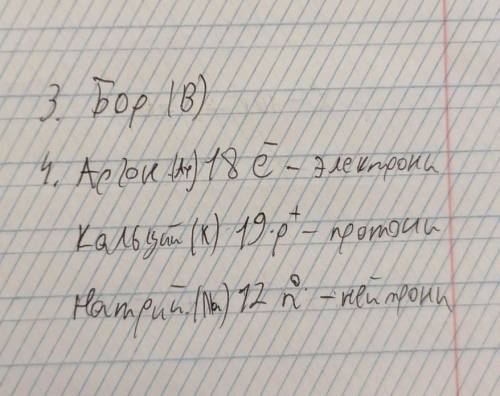 3. Бор (B)
4. Аргон (Ar) 18 ē – электрони
Кальций (K) 19 p⁺ – протони
Натрий (Na) 12 n⁰ – нейтрони